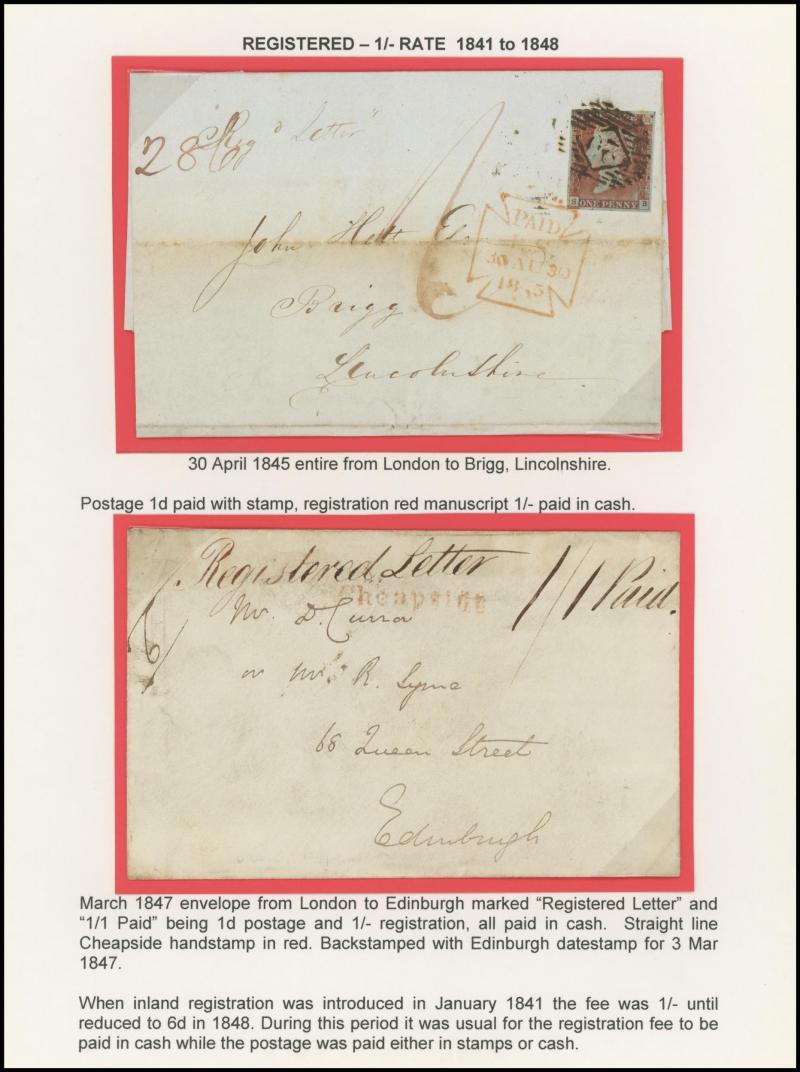 REGISTERED – 1/- RATE 1841 to 1848
Regd Letter
28
John Hett Esq
PAID
30 AU 30
1845
S ONE PENNY B
Brigg
Lincolnshire
30 April 1845 entire from London to Brigg, Lincolnshire.
Postage 1d paid with stamp, registration red manuscript 1/- paid in cash.
Registered Letter
1/1 Paid.
Cheapside
Mr. D. Curror
or Mr. R. Syme
68 Queen Street
Edinburgh
March 1847 envelope from London to Edinburgh marked “Registered Letter” and
“1/1 Paid” being 1d postage and 1/- registration, all paid in cash. Straight line
Cheapside handstamp in red. Backstamped with Edinburgh datestamp for 3 Mar
1847.
When inland registration was introduced in January 1841 the fee was 1/- until
reduced to 6d in 1848. During this period it was usual for the registration fee to be
paid in cash while the postage was paid either in stamps or cash.